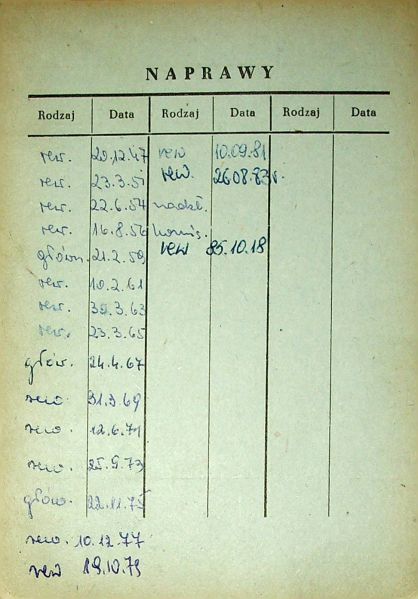 NAPRAWY
Rodzaj Data Rodzaj Data Rodzaj Data
rew. 20.12.47 rew 10.09.81
rew. 23.3.51 rew. 26.08.83 r.
rew. 22.6.54 nadzł.
rew. 16.8.56 komis.
główn. 21.2.59 rew 85.10.18
rew. 10.2.61
rew. 30.3.63
rew. 23.3.65
głów. 24.4.67
rew 31.3.69
rew. 12.6.71
rew. 25.9.73
głów. 22.11.75
rew. 10.12.77
rew 19.10.79